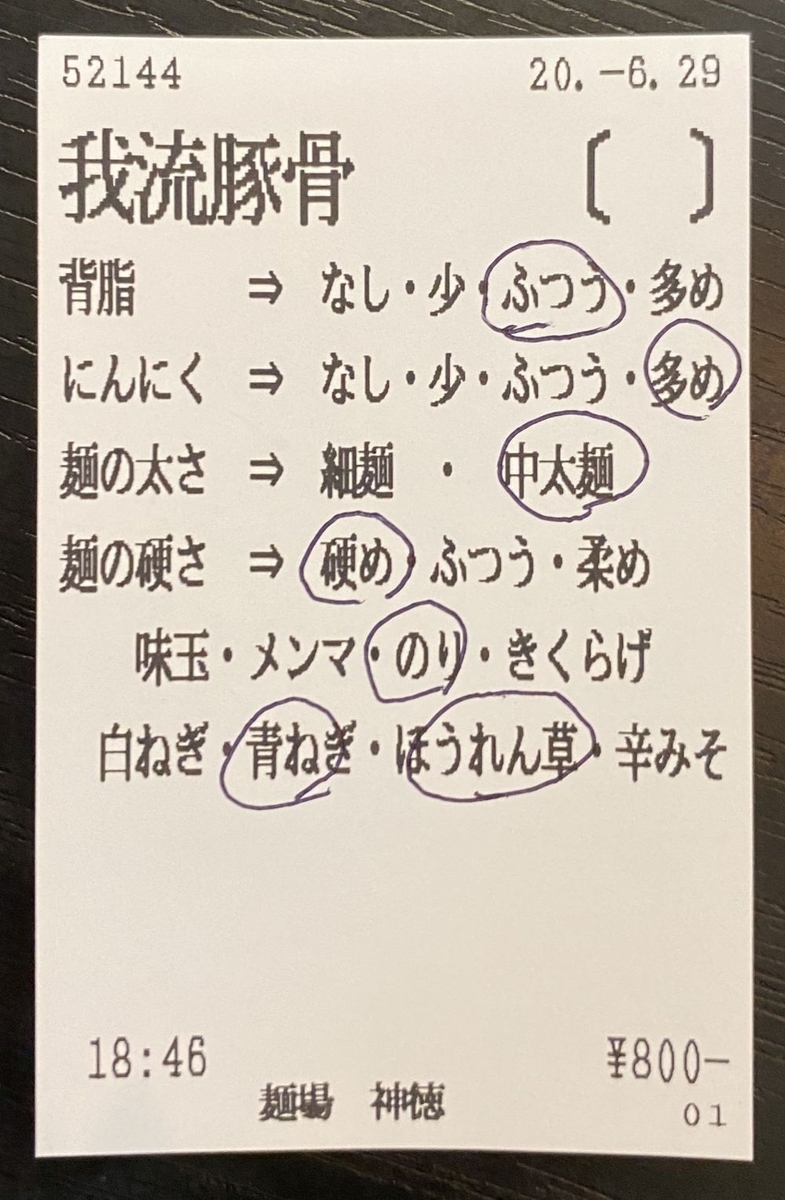 52144 20.-6.29
我流豚骨 〔 〕
背脂 ⇒ なし・少・ふつう・多め
にんにく ⇒ なし・少・ふつう・多め
麺の太さ ⇒ 細麺 ・ 中太麺
麺の硬さ ⇒ 硬め・ふつう・柔め
味玉・メンマ・のり・きくらげ
白ねぎ・青ねぎ・ほうれん草・辛みそ
18:46 ¥800-
麺場 神徳
01